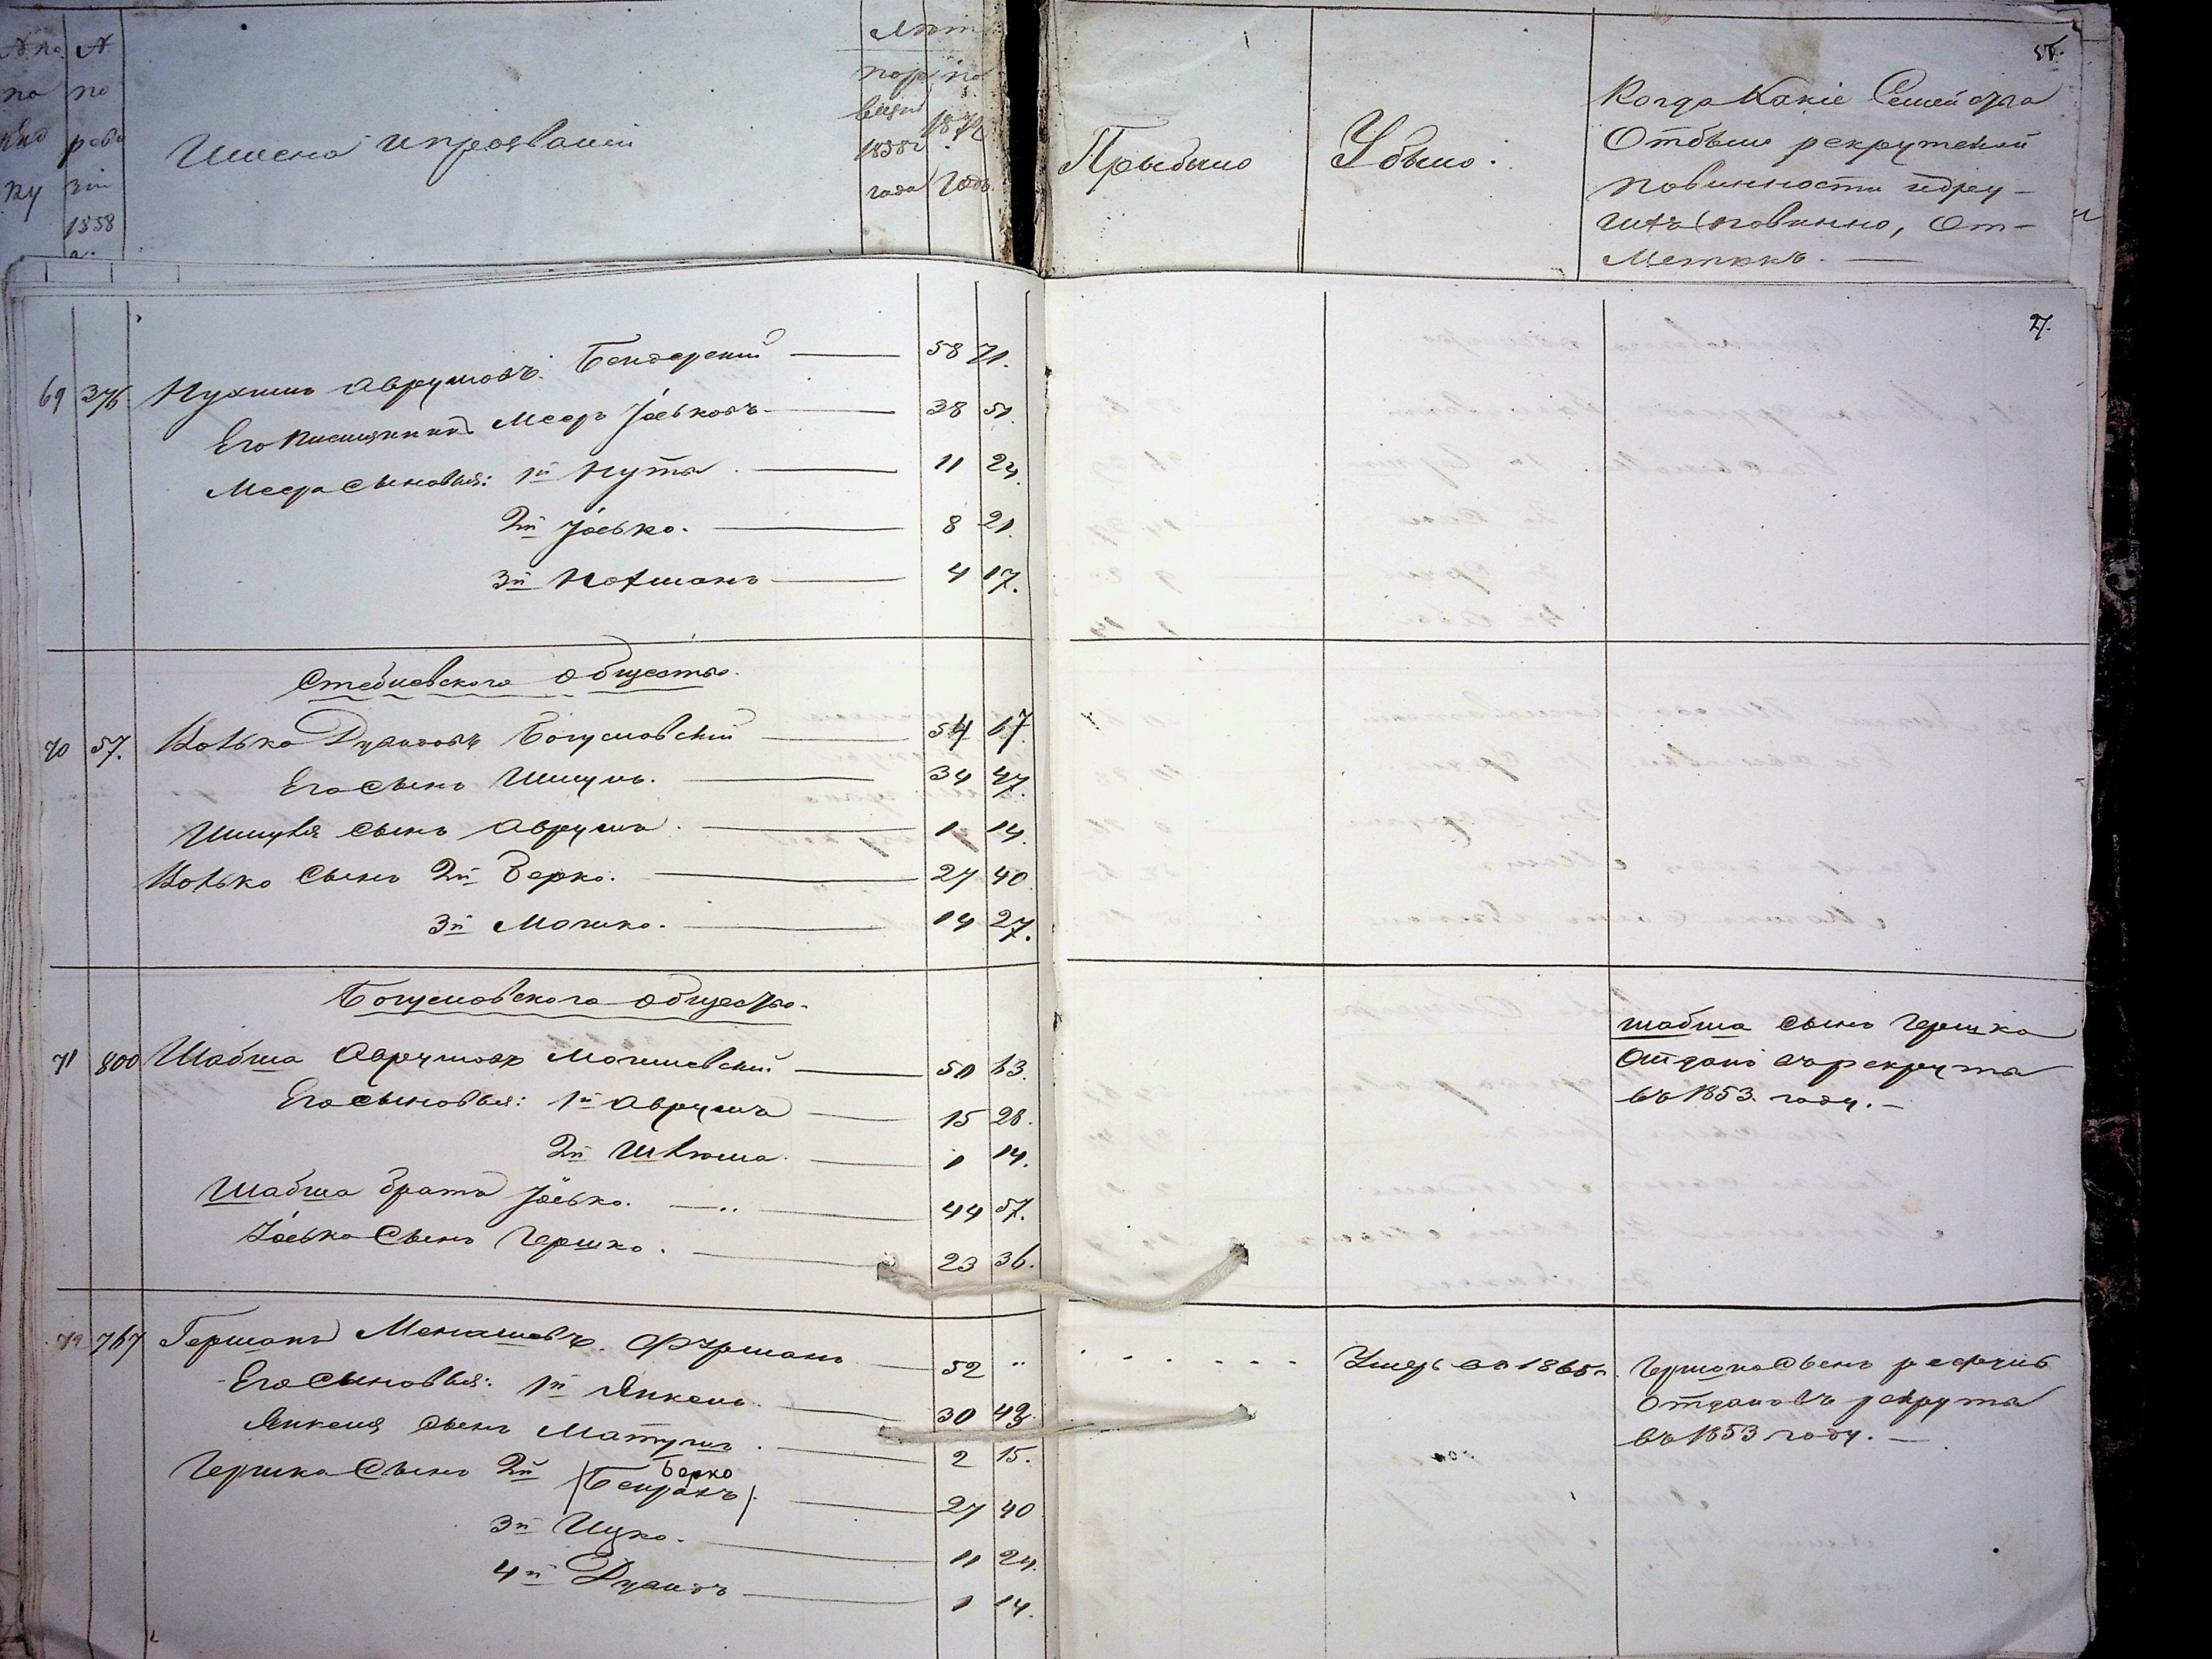 № по
по
ряд
ку
№
по
реви
зіи
1858
г.
Имена и прозваніи
Лѣт
по ре
визіи
1858
года
по
1871
Годъ
Прыбыло
Убыло.
Когда Какіе Семейства
Отбыли рекрутской
повинности и друг-
ихъ повинно, От-
Метокъ. —
27.
69 376 Нухимъ Аврумовъ Бендерскій — 58 71.
Его племянникъ Меер Іоськовъ — 38 51.
Меера сыновья: 1й Нута — 11 24.
2й Іосько. — 8 21.
3й Нахманъ — 4 17.
Стеблевского Общества.
70 57. Волько Дувидовъ Богуславскій — 54 67.
Его сынъ Шмуль. — 34 47.
Шмуля сынъ Аврумъ. — 1 14.
Волько Сынъ 2й Берко. — 27 40
3й Мошко. — 14 27.
Богуславского Общества.
71 800 Шабша Аврумовъ Могилевскій — 50 63.
Его сыновья: 1й Аврумъ — 15 28.
2й Шлюма — 1 14.
Шабша братъ Іосько. — 44 57.
Іосько Сынъ Гершко. — 23 36.
шабша сынъ Гершко
Отданъ въ рекрута
въ 1853 году. —
72 767 Гершонъ Менашевъ. Фурманъ — 52 "
Умеръ въ 1865 г.
Его сыновья: 1й Янкель — 30 43.
Янкеля сынъ Матусъ. — 2 15.
Гершка Сынъ 2й Берко
(Беирахъ) — 27 40
3й Ицко. — 11 24.
4й Дувидъ — 1 14.
Гершона Сынъ
Отданъ въ рекрута
въ 1853 году. —